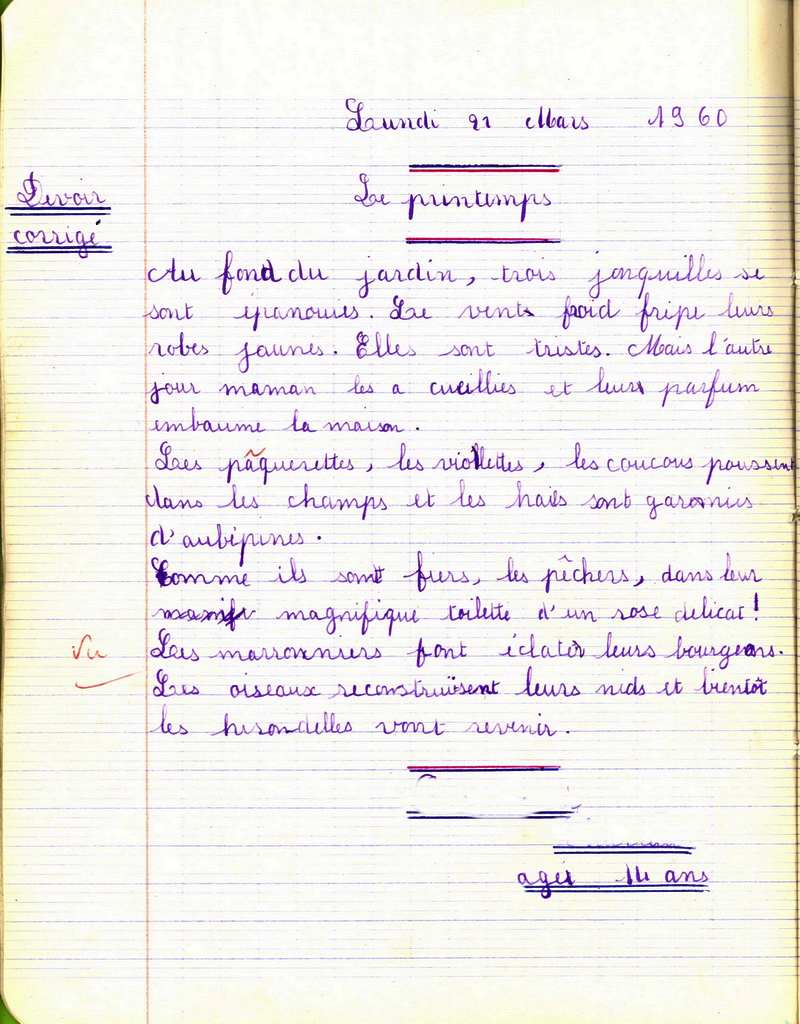 Lundi 21 Mars 1960
Devoir
corrigé
Le printemps
Au fond du jardin, trois jonquilles se
sont épanouies. Le vents froid fripe leurs
robes jaunes. Elles sont tristes. Mais l'autre
jour maman les a cueillies et leurs parfum
embaume la maison.
Les pâquerettes, les violettes, les coucous poussent
dans les champs et les haies sont garnies
d'aubépines.
Comme ils sont fiers, les pêchers, dans leur
magnifique toilette d'un rose delicat!
Vu
Les marronniers font éclater leurs bourgeons.
Les oiseaux reconstruisent leurs nids et bientôt
les hirondelles vont revenir.
agée 14 ans